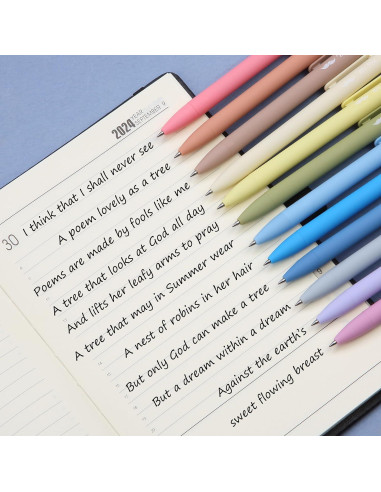 2024 YEAR
SEPTEMBER 9
30
I think that I shall never see
A poem lovely as a tree
Poems are made by fools like me
A tree that looks at God all day
And lifts her leafy arms to pray
A tree that may in Summer wear
A nest of robins in her hair
But only God can make a tree
But a dream within a dream
Against the earth's
sweet flowing breast